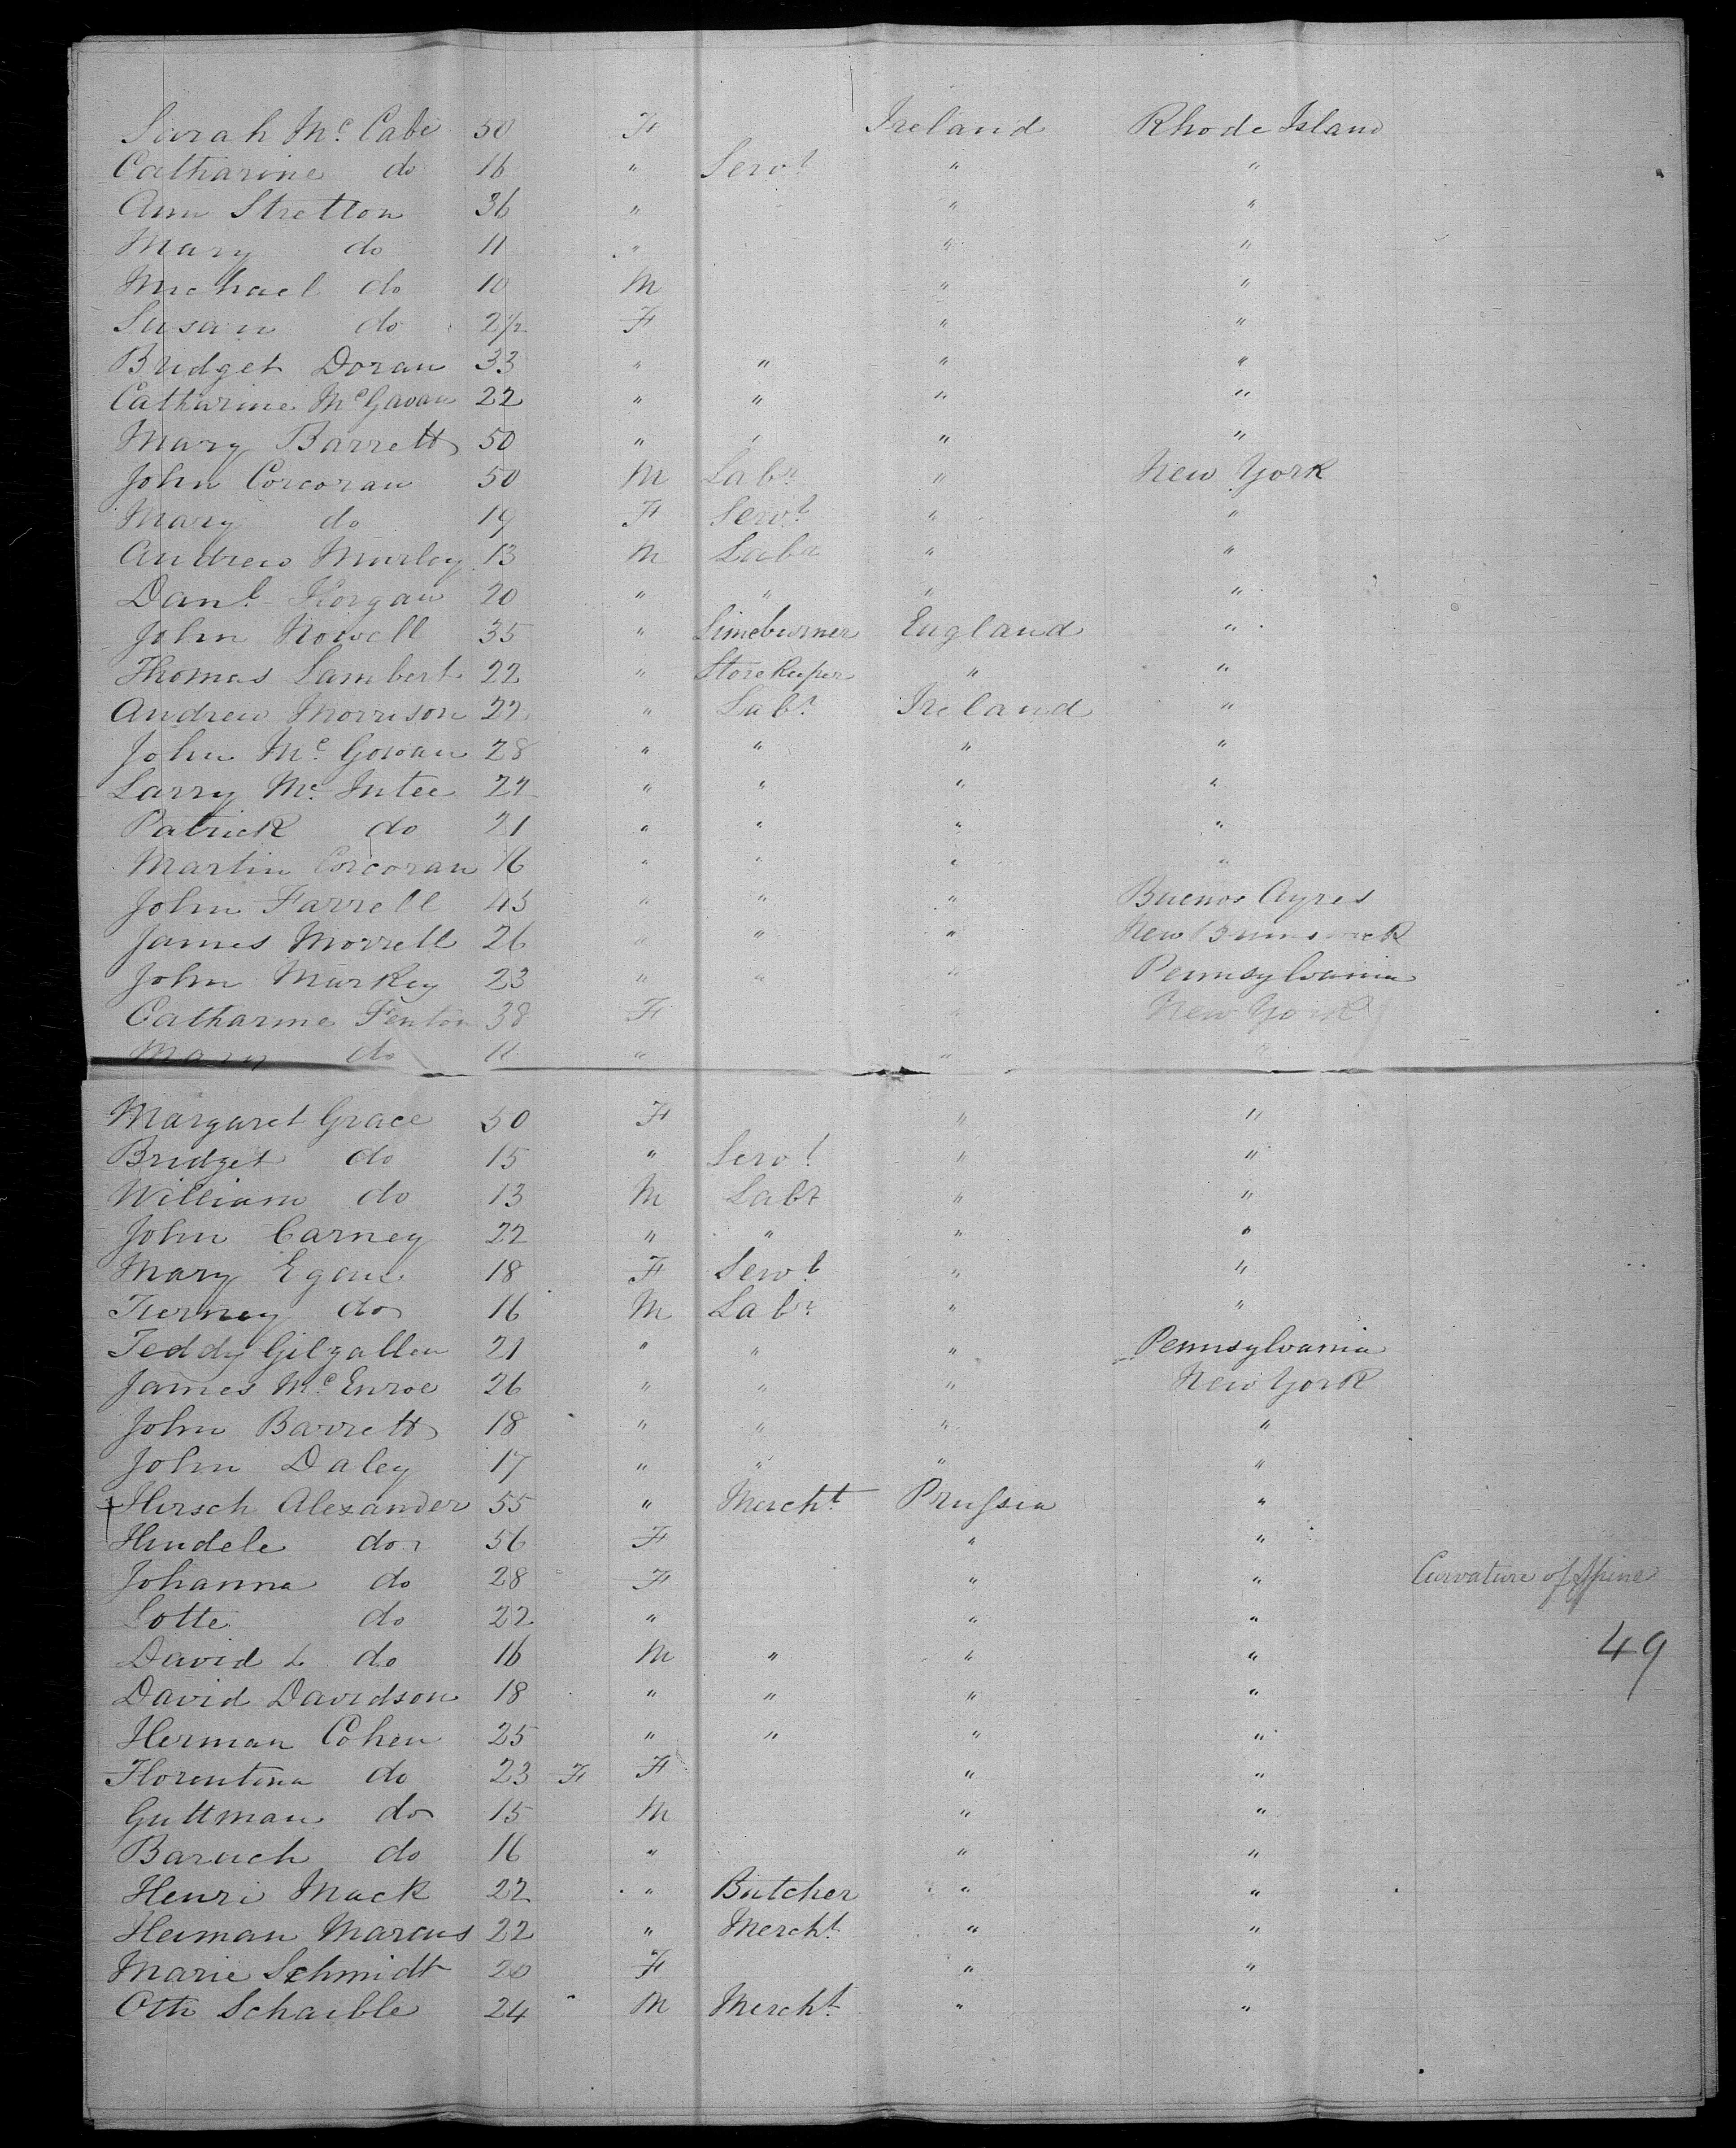 Sarah Mc Cabe 50 F Ireland Rhode Island
Catharine do 16 " Servt " "
Ann Stretton 36 " " "
Mary do 11 " " "
Michael do 10 M " "
Susan do 2 1/2 F " "
Bridget Doran 33 " " " "
Catharine McGavan 22 " " " "
Mary Barrett 50 " " " "
John Corcoran 50 M Labr " New York
Mary do 19 F Servt " "
Andrew Murley 13 M Labr " "
Danl Horgan 20 " " " "
John Nowell 35 " Limeburner England "
Thomas Lambert 22 " Storekeeper " "
Andrew Morrison 22 " Labr Ireland "
John Mc Gowan 28 " " " "
Larry Mc Intee 24 " " " "
Patrick do 21 " " " "
Martin Corcoran 16 " " " "
John Farrell 45 " " " Buenos Ayres
James Morrell 26 " " " New Brunswick
John Markey 23 " " " Pennsylvania
Catharine Fenton 38 F " New York
Mary do 11 " " "
Margaret Grace 50 F " "
Bridget do 15 " Servt " "
William do 13 M Labr " "
John Carney 22 " " " "
Mary Egan 18 F Servt " "
Tierney do 16 M Labr " "
Teddy Gilgallen 21 " " " Pennsylvania
James McEnroe 26 " " " New York
John Barrett 18 " " " "
John Daley 17 " " " "
Hirsch Alexander 55 " Mercht Prussia "
Hindele do 56 F " "
Johanna do 28 F " " Curvature of Spine
Lotte do 22 " " "
David L do 16 M " " "
49
David Davidson 18 " " " "
Herman Cohen 25 " " " "
Florentina do 23 F F " "
Guttman do 15 M " "
Baruch do 16 " " "
Henri Mack 22 " Butcher " "
Heiman Marcus 22 " Mercht " "
Marie Schmidt 20 F " "
Otto Schaible 24 " M Mercht " "